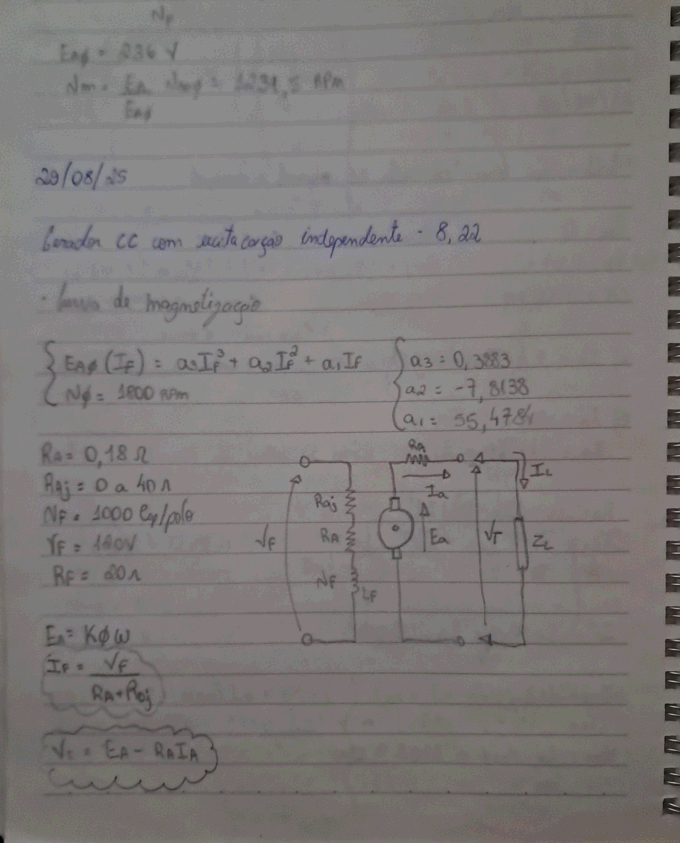 NF
EAϕ = 236 V
Nm = EA/EAϕ Nmϕ = RPM
29/08/25
Gerador CC com excita independente - 8,22
• Curva de magnetização
{ EAϕ(IF) = a3IF³ + a2IF² + a1IF
{ a3 = 0,3883
Nϕ = 1800 RPM
a2 = -7,8138
a1 = 55,4784
RA = 0,18 Ω
Raj = 0 a 40 Ω
NF = 1000 esp/polo
VF = 120V
RF = 20 Ω
VF
Raj
RA
NF
LF
Ra
Ia
Ea
VT
IL
ZL
EA = Kϕω
IF = VF/(RA+Raj)
VT = EA - RAIA